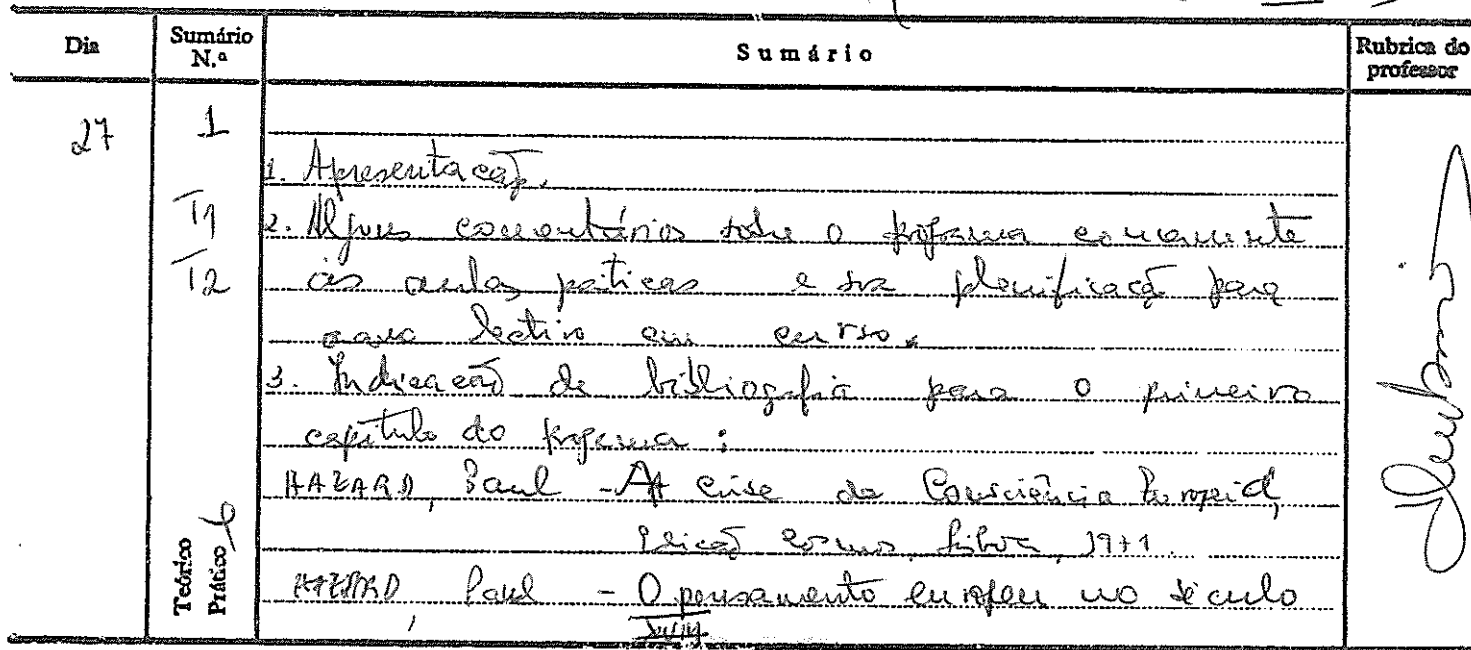 Dia
Sumário N.º
Sumário
Rubrica do professor
27
1
T1
T2
Teórico
Prático
1. Apresentação.
2. Alguns comentários sobre o programa concernente
às aulas práticas e sua planificação para
o ano lectivo em curso.
3. Indicação de bibliografia para o primeiro
capítulo do programa:
HAZARD, Paul - A Crise da Consciência Europeia,
Edição Cosmos, Lisboa, 1971.
HAZARD, Paul - O pensamento europeu no século
XVIII